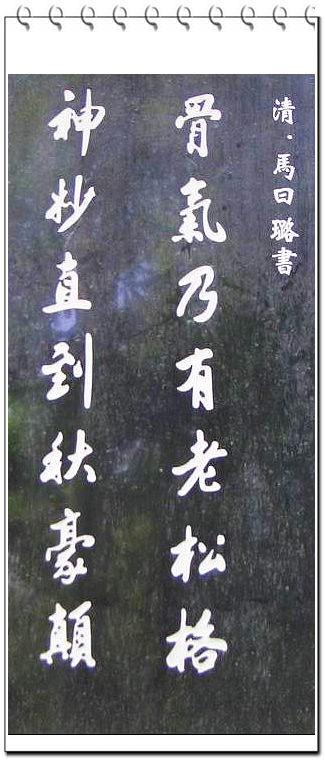 清·馬曰璐書
骨氣乃有老松格
神妙直到秋豪顛